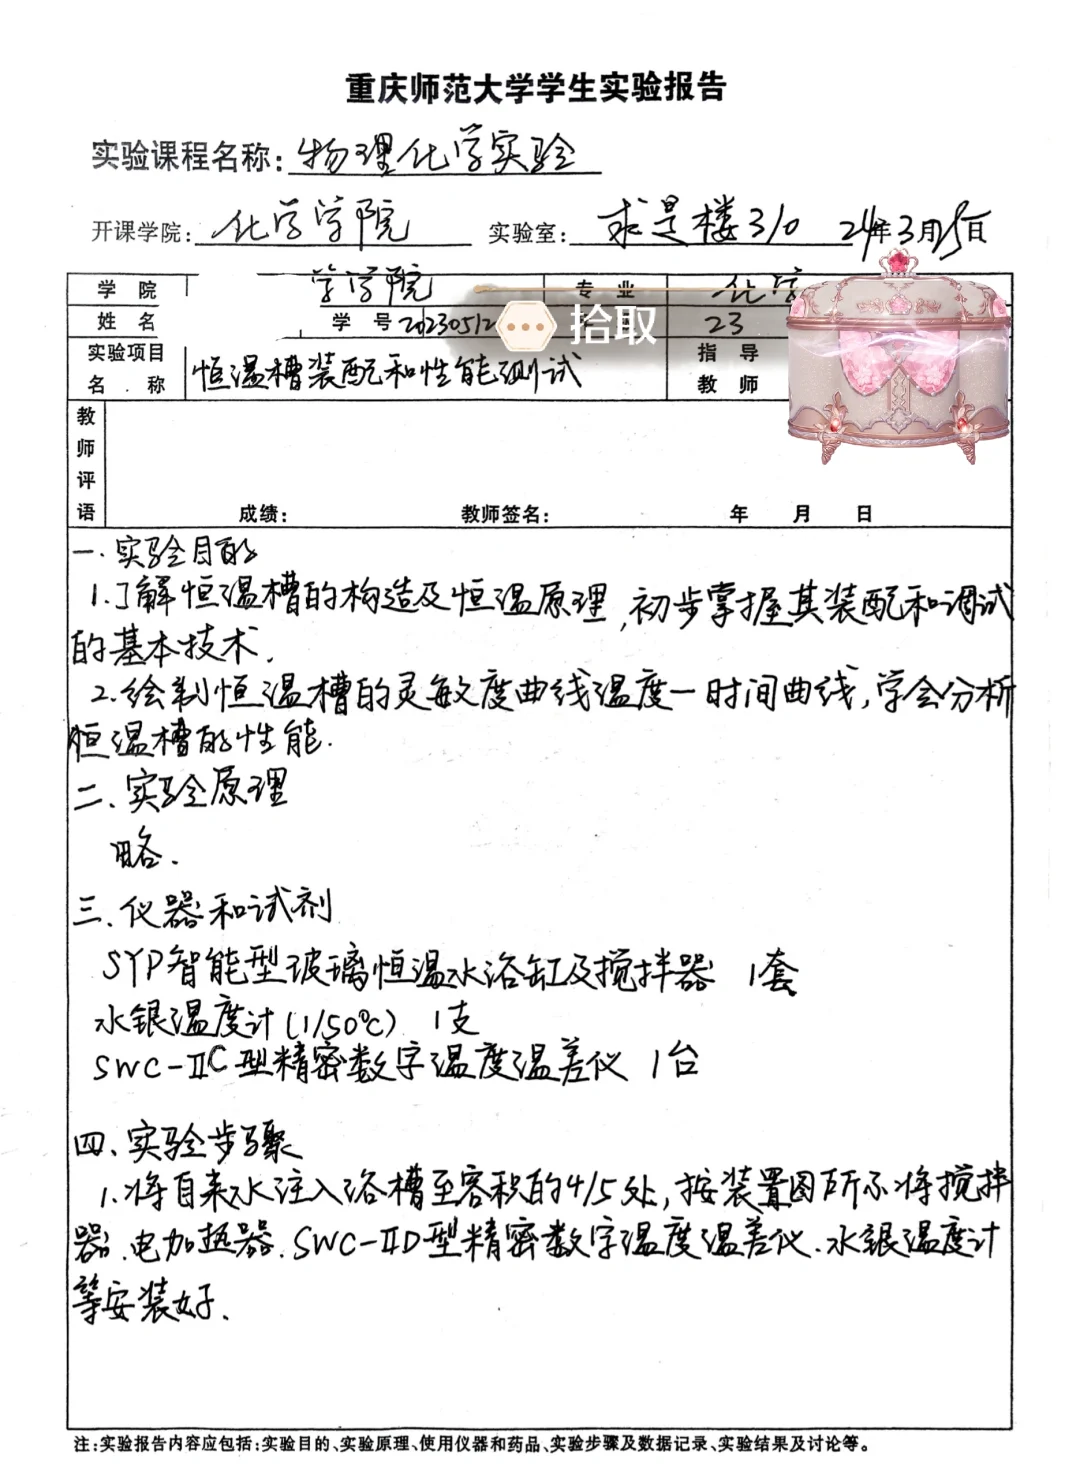 重庆师范大学学生实验报告
实验课程名称: 物理化学实验
开课学院: 化学学院 实验室: 求是楼310 24年3月15日
学院 学学院 专业 化学
姓名 学号 20230512 23
拾取
实验项目名称 恒温槽装配和性能测试 指导教师
教师评语
成绩: 教师签名: 年 月 日
一.实验目的
1.了解恒温槽的构造及恒温原理,初步掌握其装配和调试
的基本技术.
2.绘制恒温槽的灵敏度曲线温度一时间曲线,学会分析
恒温槽的性能.
二、实验原理
略.
三.仪器和试剂
SYP智能型玻璃恒温水浴缸及搅拌器 1套
水银温度计(1/50℃) 1支
SWC-IIC型精密数字温度温差仪 1台
四、实验步骤
1.将自来水注入浴槽至容积的4/5处,按装置图所示将搅拌
器.电加热器.SWC-IID型精密数字温度温差仪.水银温度计
等安装好.
注:实验报告内容应包括:实验目的、实验原理、使用仪器和药品、实验步骤及数据记录、实验结果及讨论等。